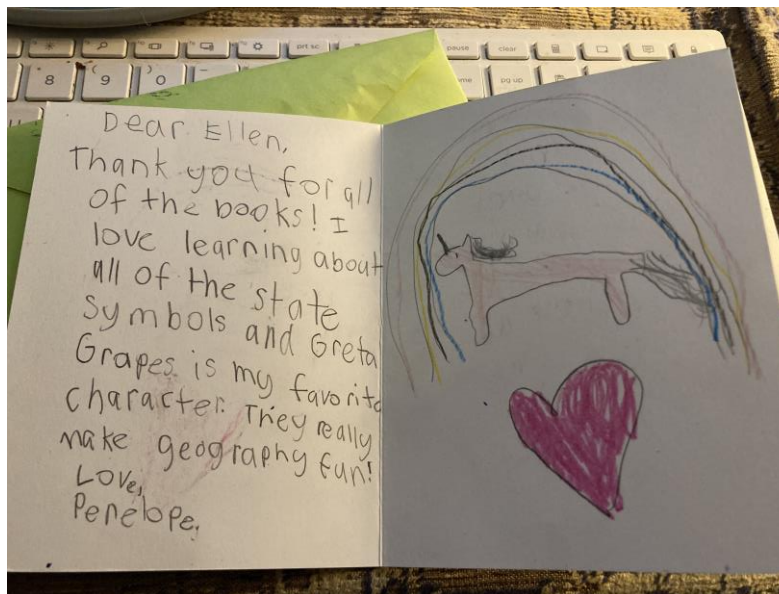 prt sc
pause
clear
8
( 9
) 0
home
pg up
Dear Ellen,
Thank you for all
of the books! I
love learning about
all of the state
symbols and Greta
Grapes is my favorite
character. They really
make geography fun!
Love,
Penelope.